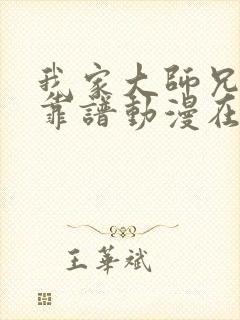 我家大師兄
靠譜動漫在
王華斌